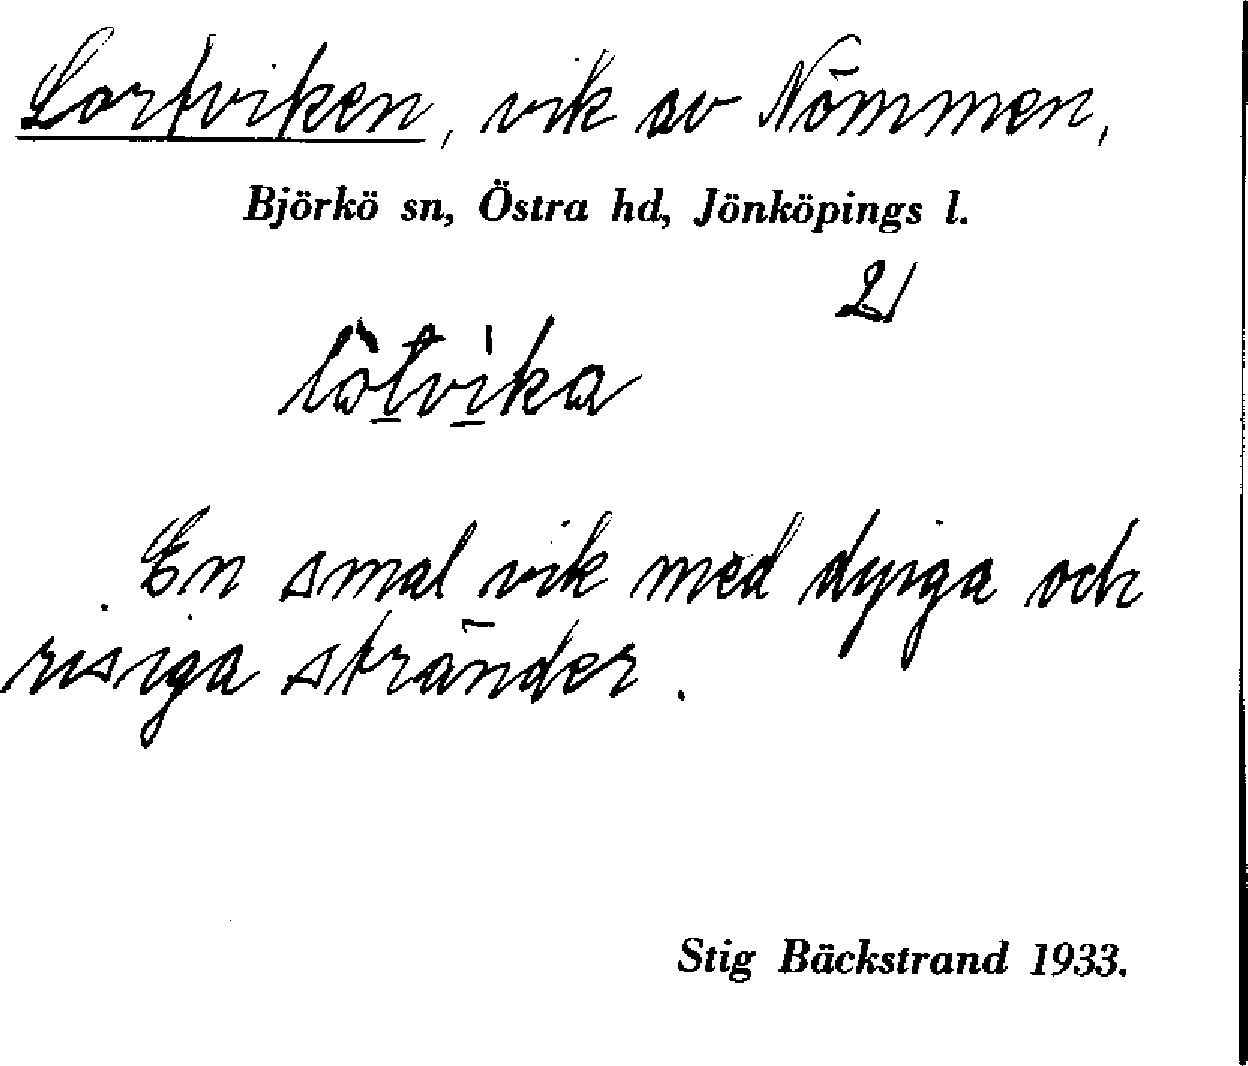 Lortviken, vik av Nömmen,
Björkö sn, Östra hd, Jönköpings l.
21
lòtvika
En smal vik med dyiga och
risiga stränder.
Stig Bäckstrand 1933.